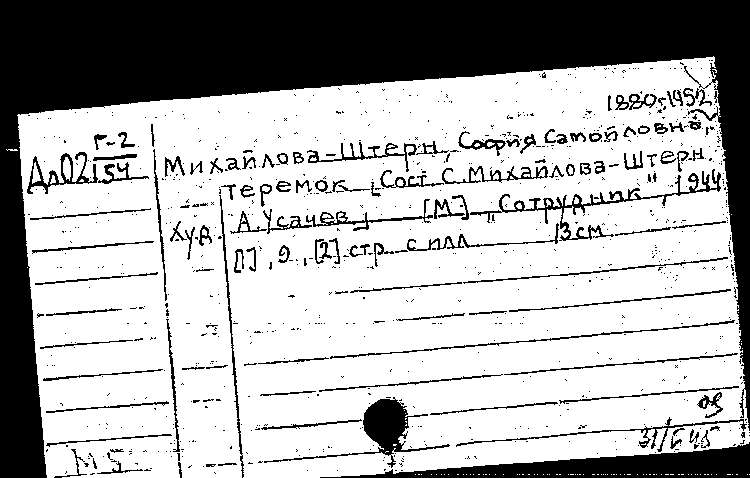 1880-1952
Г-2
Дл02 154
Михайлова-Штерн, София Самойловна.
Теремок [Сост. С. Михайлова-Штерн.
Худ. А. Усачев] [М] „Сотрудник", 1944
[1], 9, [2] стр. с илл 13 см
31/
М 5